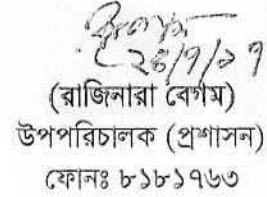 ২৪/৭/১৭
(রাজিনারা বেগম)
উপপরিচালক (প্রশাসন)
ফোনঃ ৮১৮১৭৬৩